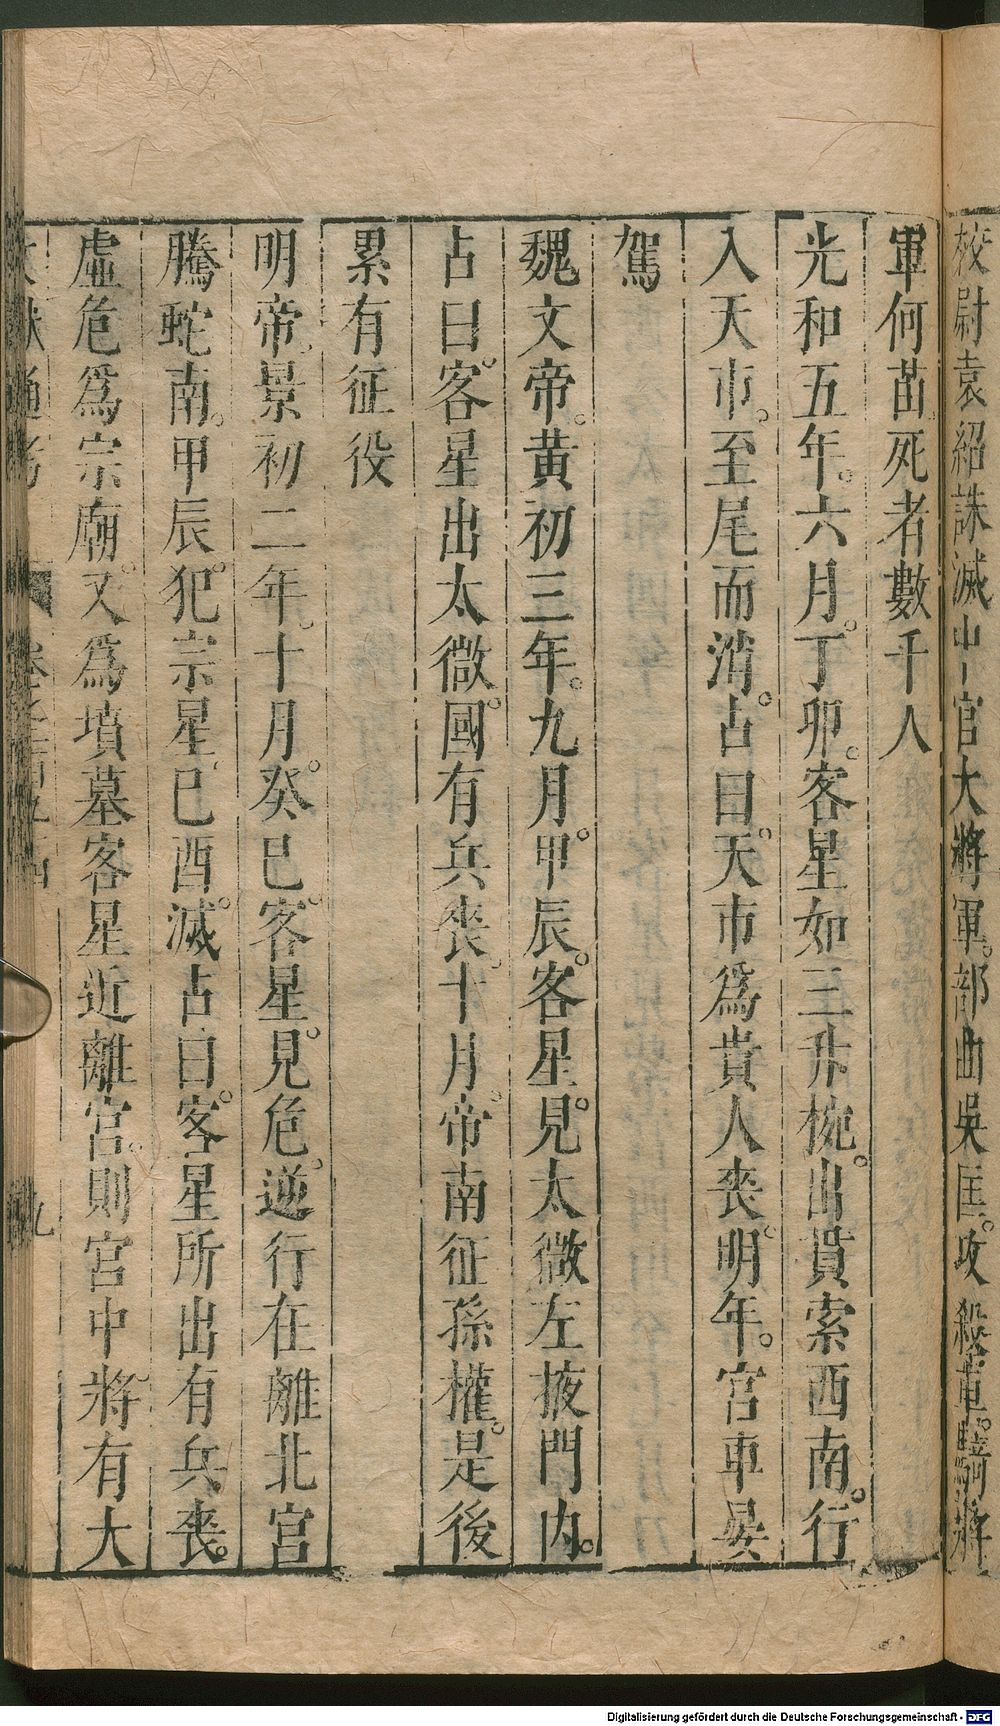 校尉袁紹誅滅中官大將軍。部曲吳匡。攻殺車。騎將
軍何苗死者數千人
光和五年。六月。丁卯。客星如三升椀。出貫索西南。行
入天市。至尾而消。占曰。天市爲貴人喪。明年。宮車晏
駕
魏文帝。黃初三年。九月。甲辰。客星。見太微左掖門內。
占曰。客星出太微。國有兵喪。十月。帝南征孫權。是後
累有征役
明帝。景初二年。十月。癸巳。客星。見危。逆行在離北宮
騰蛇南。甲辰。犯宗星。已酉。滅。占曰。客星所出有兵喪。
虛危爲宗廟。又爲墳墓客星近離宮。則宮中。將有大
卷之二百九十四
九
Digitalisierung gefördert durch die Deutsche Forschungsgemeinschaft - DFG